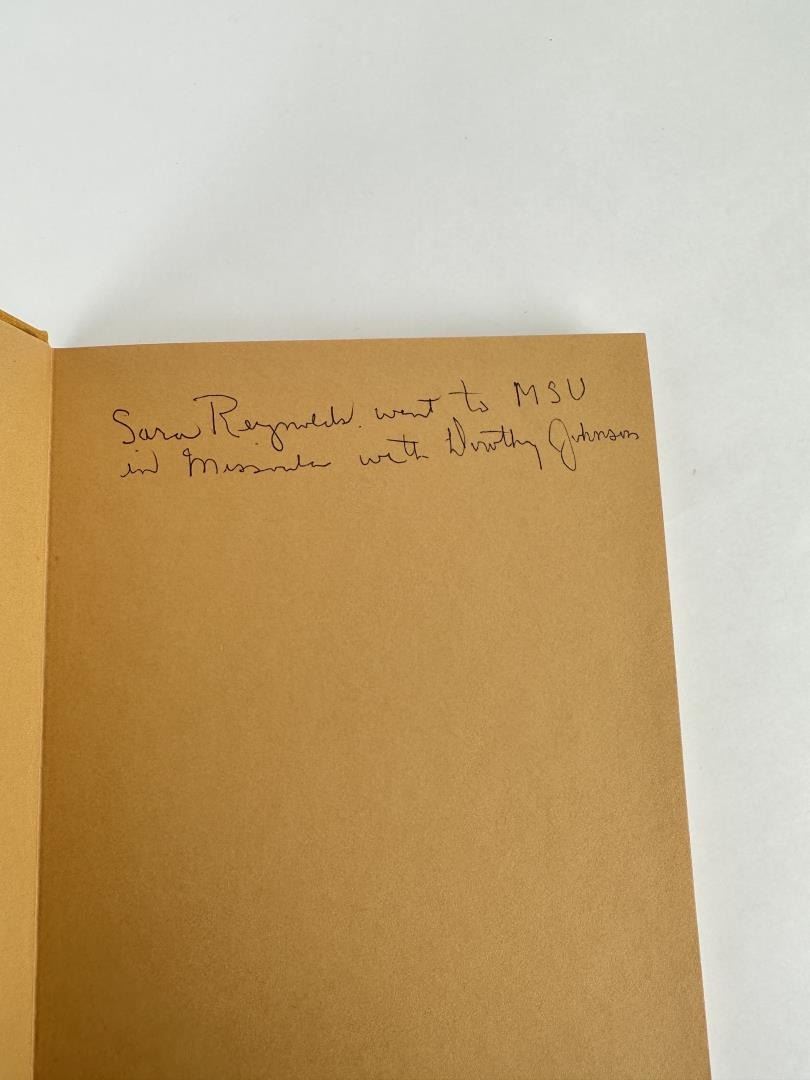 Sara Reynolds went to MSU
in Missoula with Dorothy Johnson